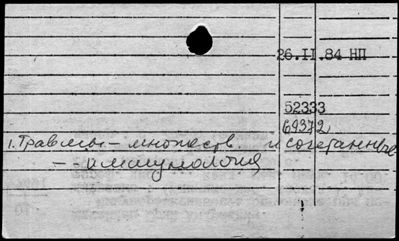 26.II.84 НП
52333
69372
1. Травмы - множеств. и сочетанные
- иммунология